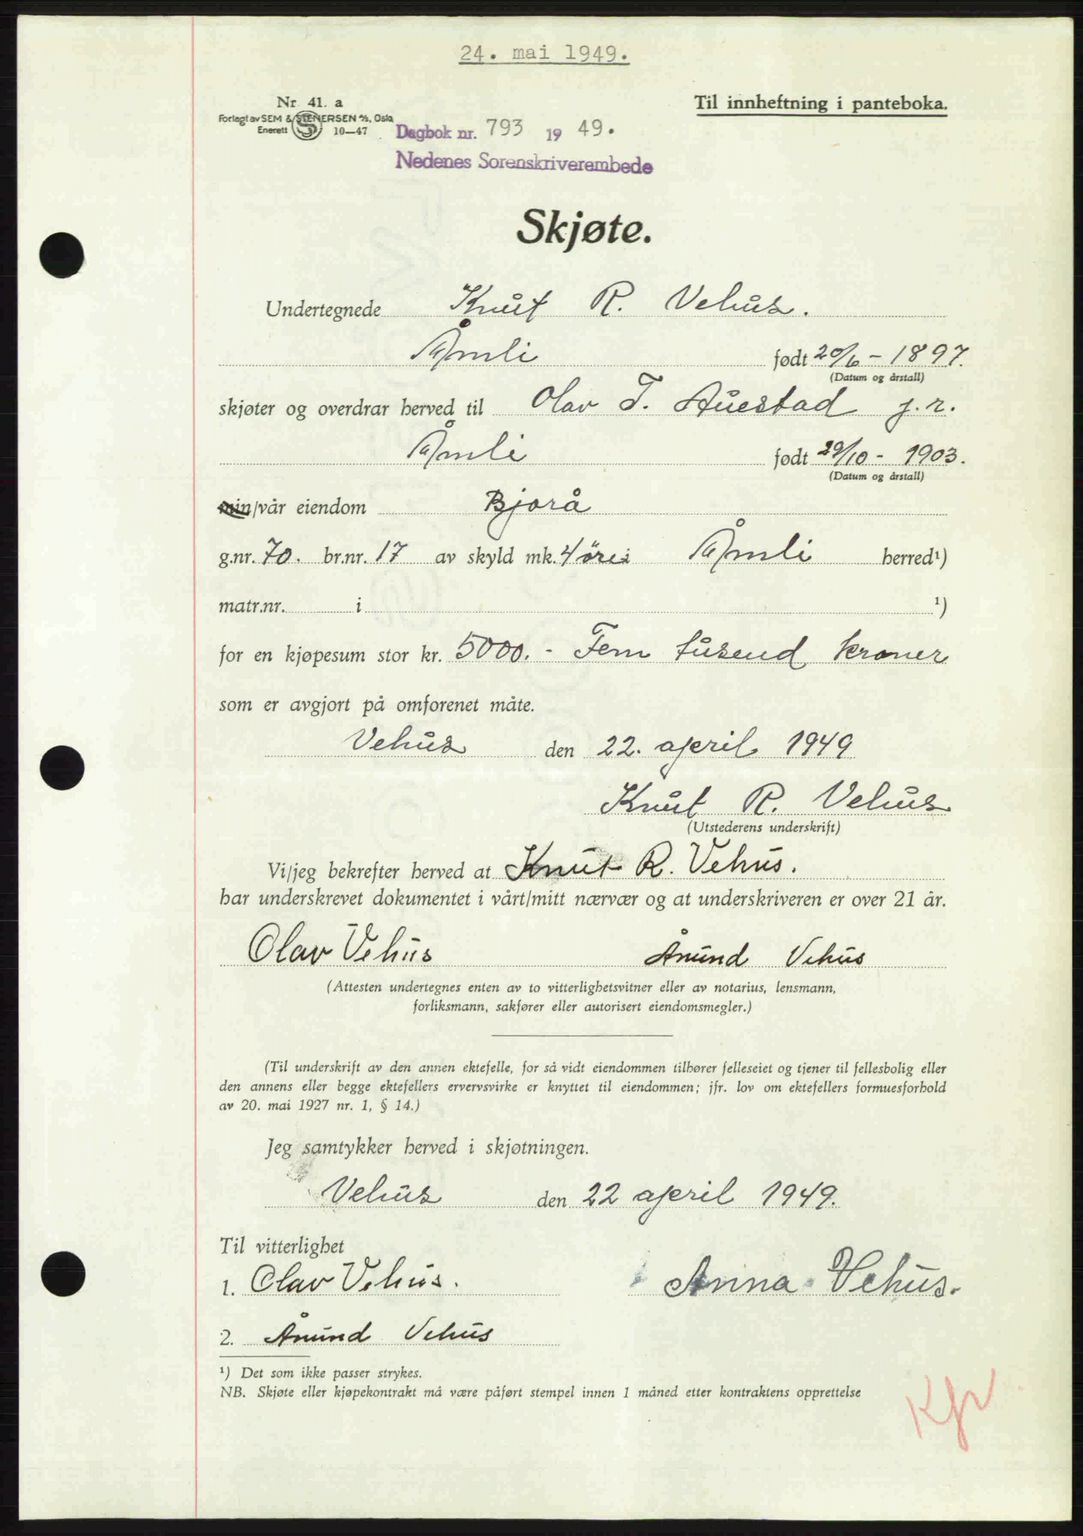 24. mai 1949.
Nr 41. a
Til innheftning i panteboka.
Forlagt av SEM & STENERSEN A/S, Oslo
Enerett S 10—47
Dagbok nr. 793 1949.
Nedenes Sorenskriverembede
Skjøte.
Undertegnede Knut R. Vehus.
Åmli født 20/6 - 1897.
(Datum og årstall)
skjøter og overdrar herved til Olav T. Auestad j.r.
Åmli født 29/10 - 1903.
(Datum og årstall)
min/vår eiendom Bjorå
g.nr. 70. br.nr. 17 av skyld mk. 4 øre i Åmli herred¹)
matr.nr. i ¹)
for en kjøpesum stor kr. 5000. - Fem tusend kroner
som er avgjort på omforenet måte.
Vehus den 22. april 1949
Knut R. Vehus
(Utstederens underskrift)
Vi/jeg bekrefter herved at Knut R. Vehus.
har underskrevet dokumentet i vårt/mitt nærvær og at underskriveren er over 21 år.
Olav Vehus Ånund Vehus
(Attesten undertegnes enten av to vitterlighetsvitner eller av notarius, lensmann,
forliksmann, sakfører eller autorisert eiendomsmegler.)
(Til underskrift av den annen ektefelle, for så vidt eiendommen tilhører felleseiet og tjener til fellesbolig eller
den annens eller begge ektefellers ervervsvirke er knyttet til eiendommen; jfr. lov om ektefellers formuesforhold
av 20. mai 1927 nr. 1, § 14.)
Jeg samtykker herved i skjøtningen.
Vehus den 22 april 1949.
Til vitterlighet
1. Olav Vehus. Anna Vehus.
2. Ånund Vehus
¹) Det som ikke passer strykes.
NB. Skjøte eller kjøpekontrakt må være påført stempel innen 1 måned etter kontraktens opprettelse